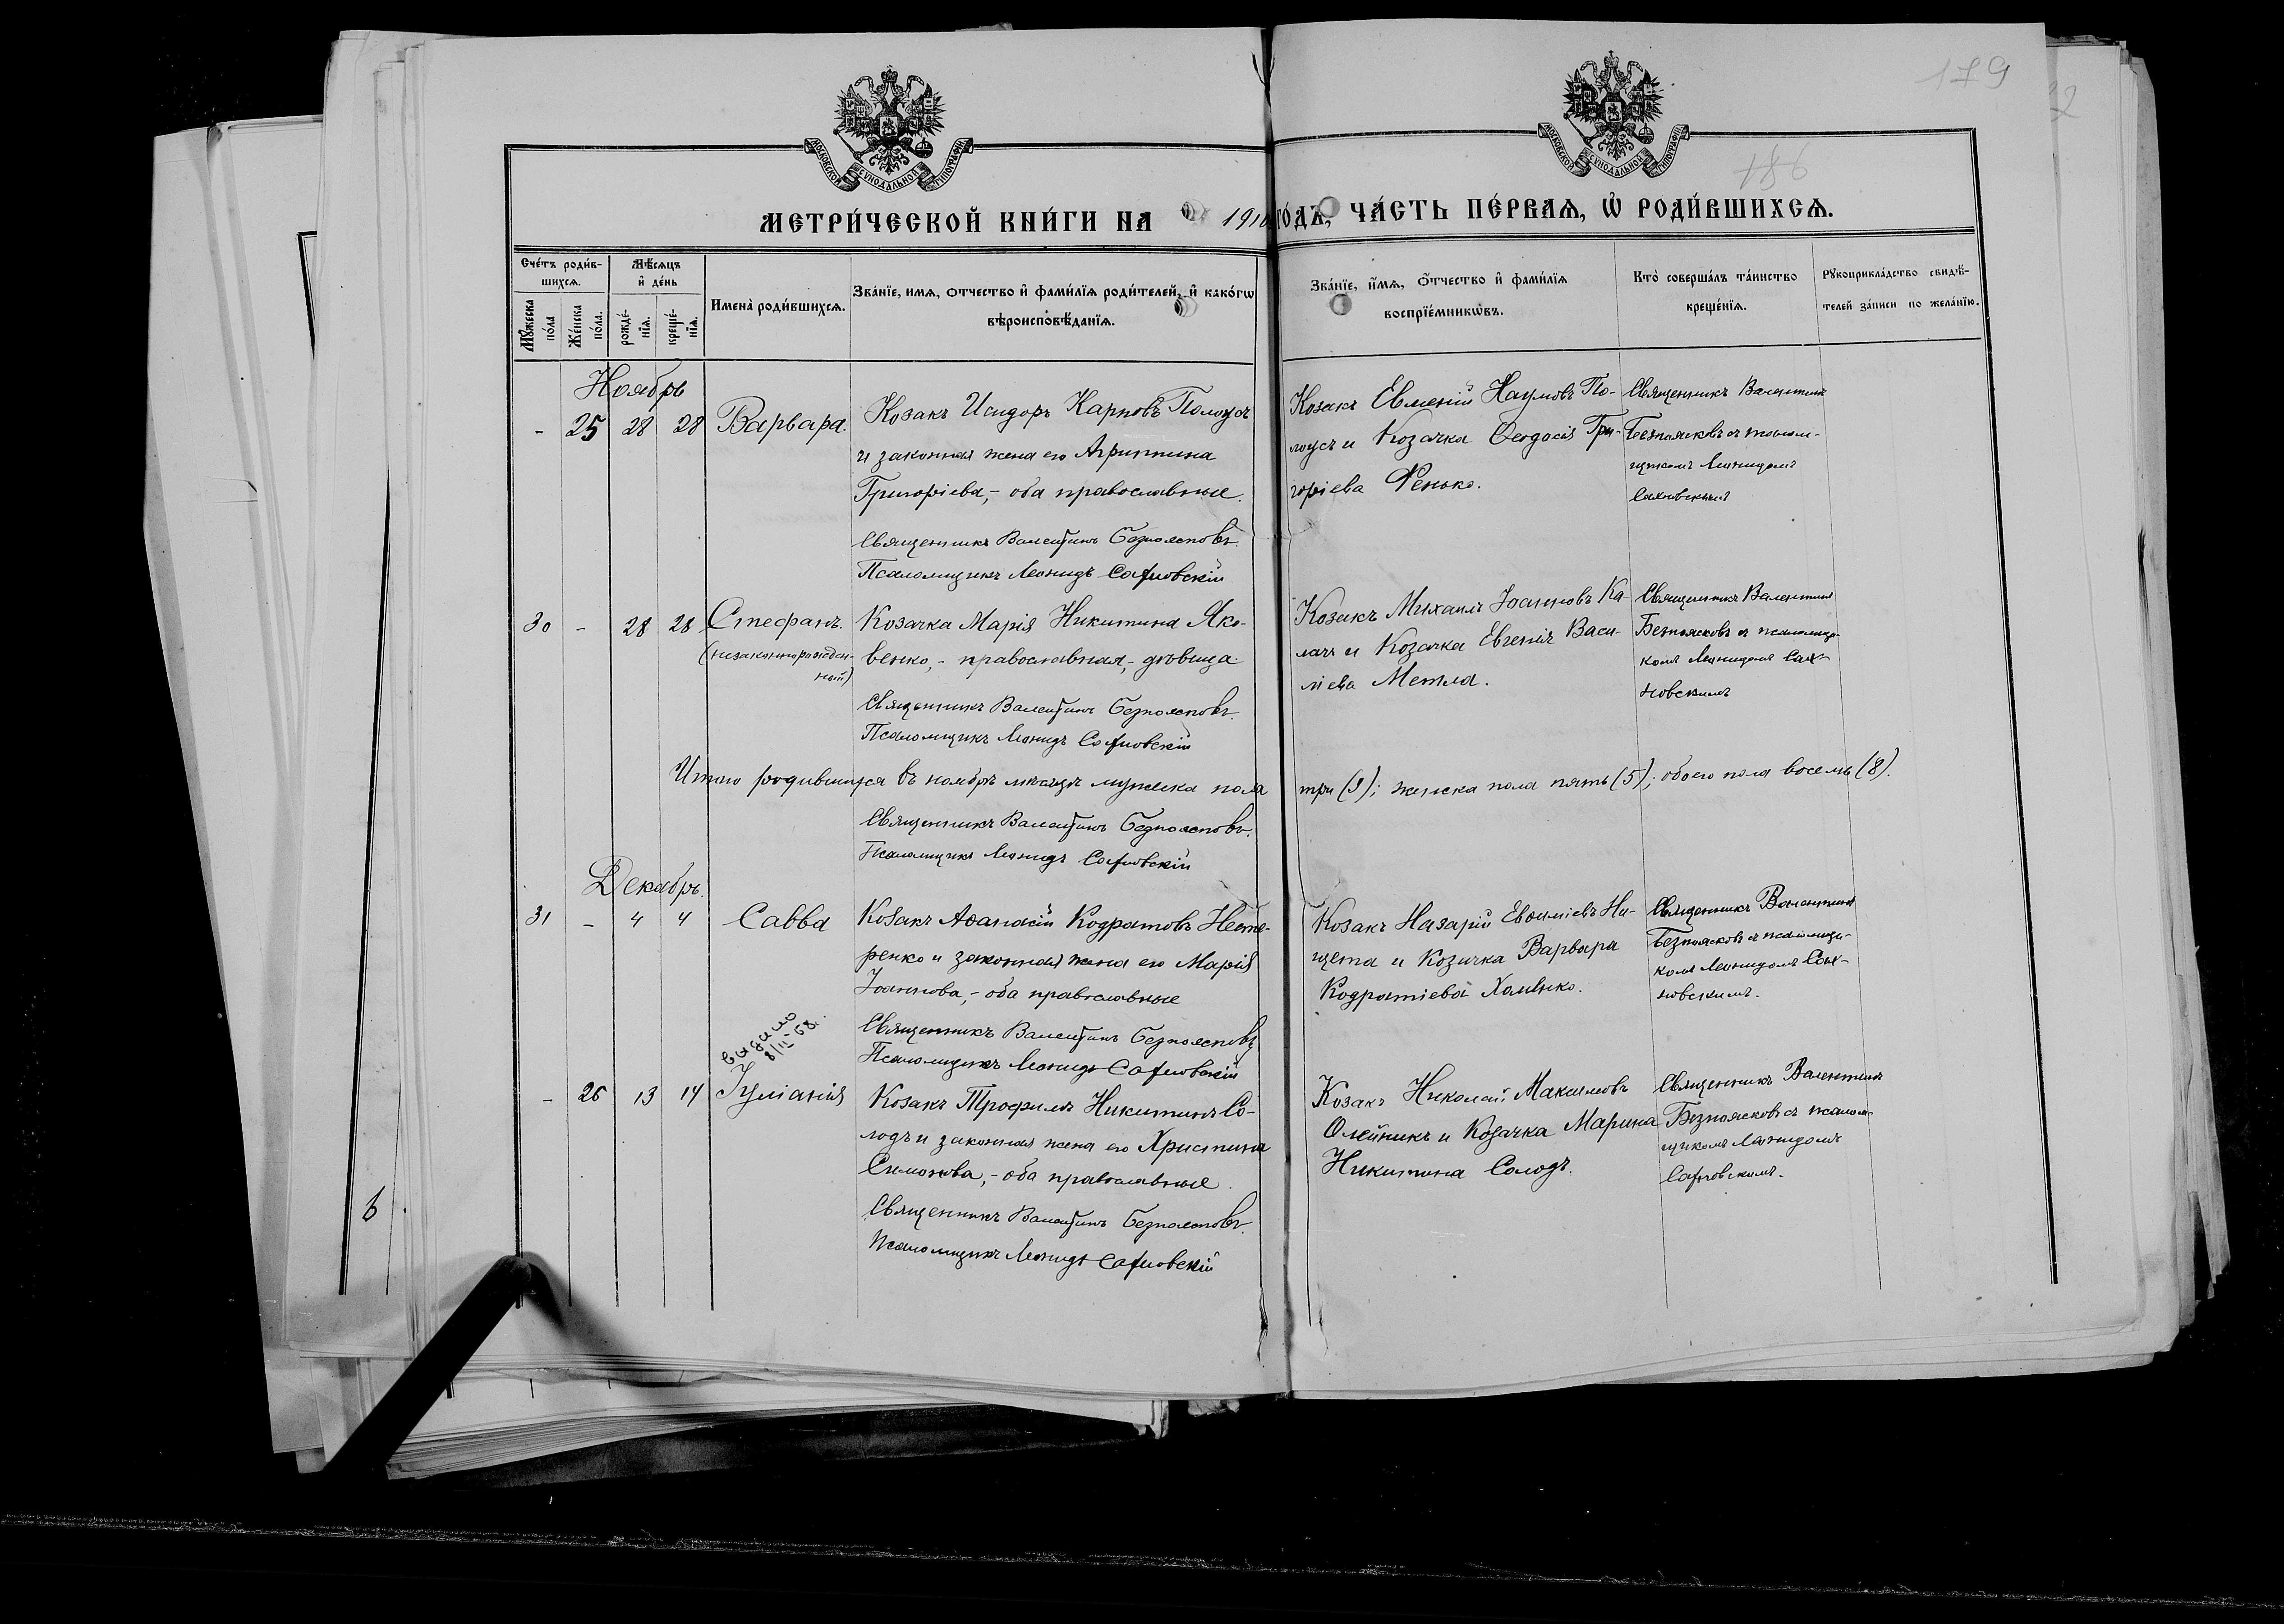 179
186
МОСКОВСКОЙ СУНОДАЛЬНОЙ ТИПОГРАФІИ
МОСКОВСКОЙ СУНОДАЛЬНОЙ ТИПОГРАФІИ
МЕТРИ́ЧЕСКОЙ КНИ́ГИ НА 1910 ГО́ДЪ, ЧА́СТЬ ПЕ́РВАѦ, Ѡ҆ РОДИ́ВШИХСѦ.
Сче́тъ роди́в-
шихсѧ.
Мꙋжеска по́ла
Же́нска по́ла.
Мѣ́сѧцъ и҆ де́нь
рожде́-нїѧ.
креще́-нїѧ.
Имена̀ роди́вшихсѧ.
Зва́нїе, имѧ, отчество и҆ фами́лїѧ роди́телей, и҆ како́гѡ
вѣроисповѣ́данїѧ.
Зва́нїе, и҆́мѧ, о҆́тчество и҆ фами́лїѧ
воспрїе́мникѡвъ.
Кто̀ соверша́лъ та́инство
креще́нїѧ.
Рꙋкоприкла́дство свидѣ́-
телей за́писи по жела́нїю.
Ноябрь
- 25 28 28 Варвара.
Козакъ Исидоръ Карповъ Полоусъ
и законная жена его Агриппина
Григоріева,- оба православные.
Священникъ Валентинъ Безпоясковъ.
Псаломщикъ Леонидъ Сахновскій
Козакъ Евменій Наумовъ По-
лоусъ и Козачка Ѳеодосія Гри-
горіева Фенько.
Священникъ Валентинъ
Безпоясковъ съ псалом-
щикомъ Леонидомъ
Сахновскимъ
30 - 28 28 Стефанъ.
(незаконнорожден-
ный)
Козачка Марія Никитина Яко-
венко,- православная,- дѣвица.
Священникъ Валентинъ Безпоясковъ.
Псаломщикъ Леонидъ Сахновскій
Козакъ Михаилъ Іоанновъ Ка-
лачъ и Козачка Евгенія Васи-
ліева Метла.
Священникъ Валентинъ
Безпоясковъ съ псаломщи-
комъ Леонидомъ Сах-
новскимъ
Итого родившихся въ ноябрѣ мѣсяцѣ мужеска пола три (3); женска пола пять (5); обоего пола восемь (8).
Священникъ Валентинъ Безпоясковъ.
Псаломщикъ Леонидъ Сахновскій
Декабрь.
31 - 4 4 Савва
Козакъ Аѳанасій Кодратовъ Несте-
ренко и законная жена его Марія
Іоаннова,- оба православные
Священникъ Валентинъ Безпоясковъ
Псаломщикъ Леонидъ Сахновскій
Козакъ Назарій Евѳиміевъ Ни-
щета и Козачка Варвара
Кодратіева Хоменко.
Священникъ Валентинъ
Безпоясковъ съ псаломщи-
комъ Леонидомъ Сах-
новскимъ.
видано
- 26 13 14 Іуліанія
Козакъ Трофимъ Никитинъ Со-
лодъ и законная жена его Христина
Симонова,- оба православные.
Священникъ Валентинъ Безпоясковъ.
Псаломщикъ Леонидъ Сахновскій
Козакъ Николай Максимовъ
Олейникъ и Козачка Марина
Никитина Солодъ.
Священникъ Валентинъ
Безпоясковъ съ псалом-
щикомъ Леонидомъ
Сахновскимъ.